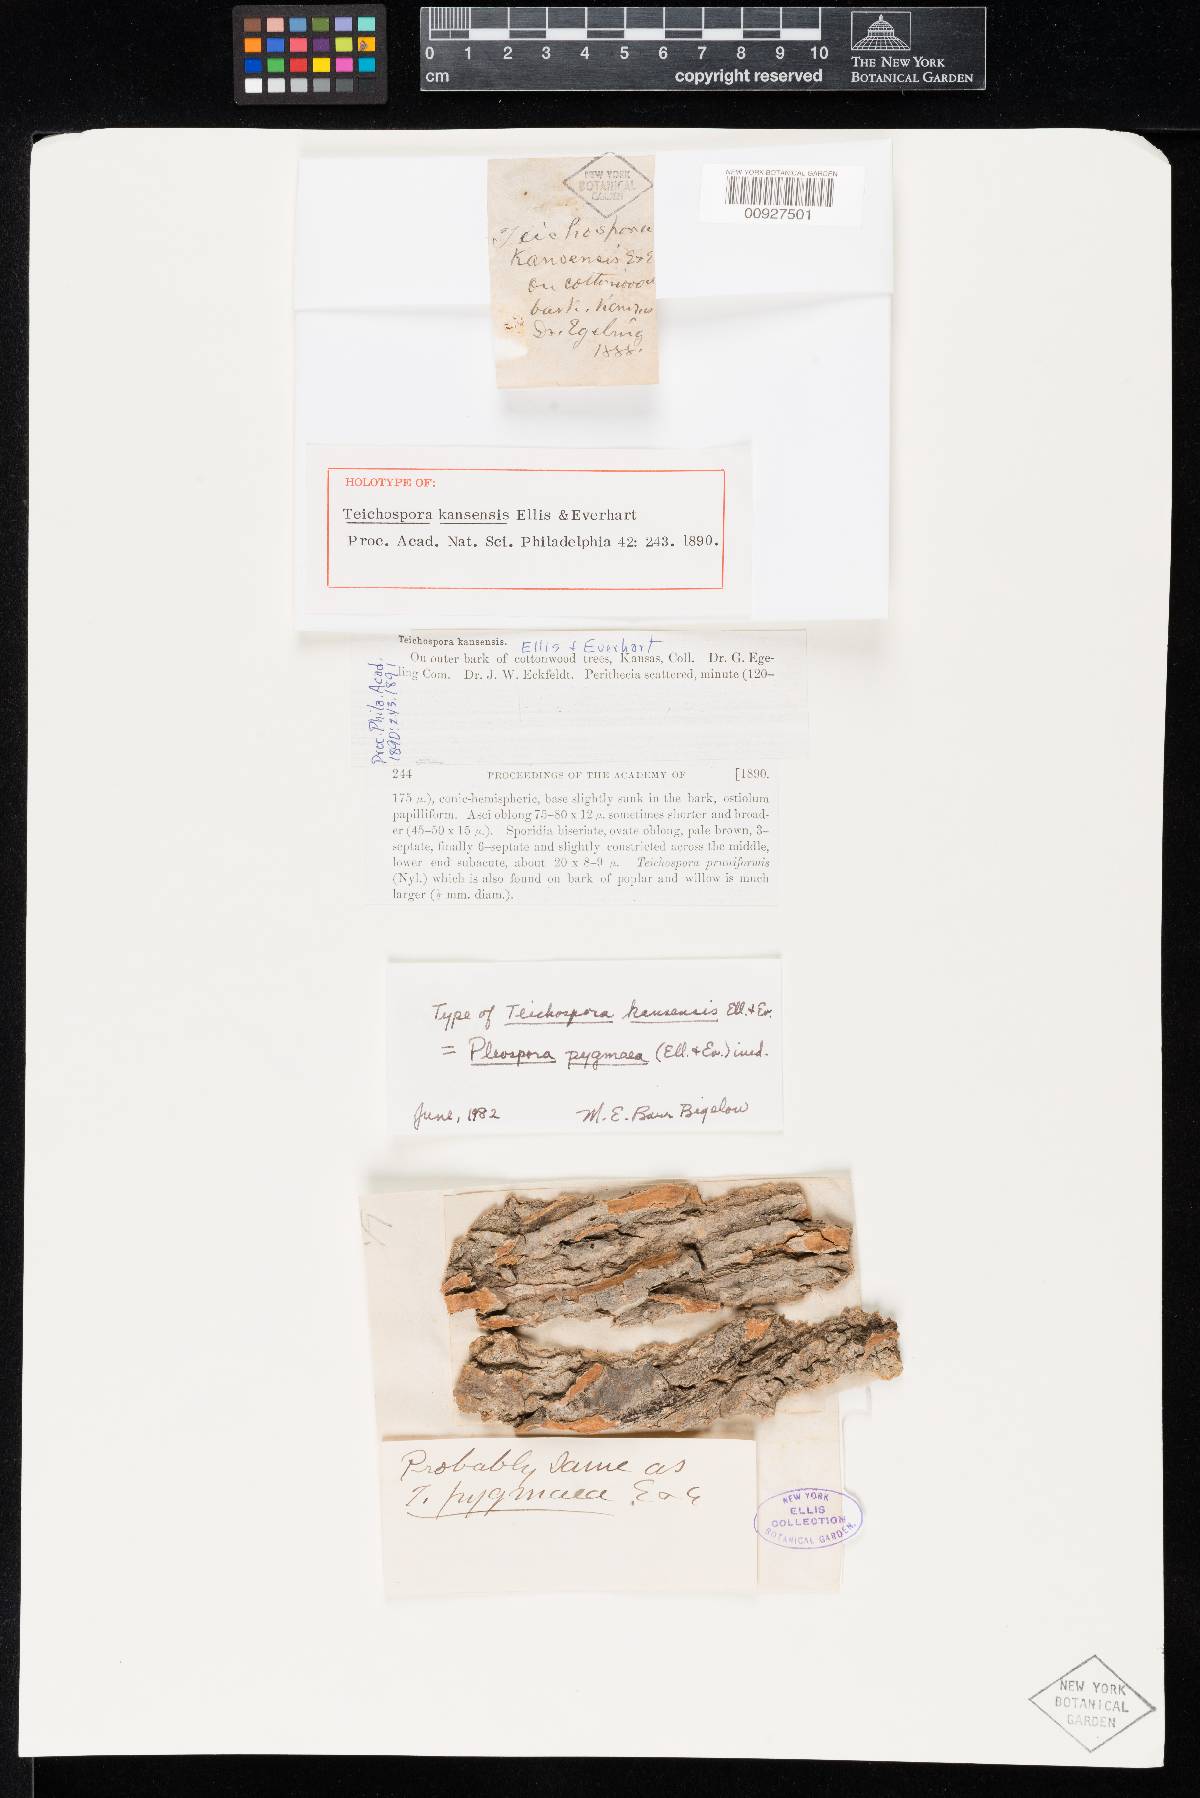 0 1 2 3 4 5 6 7 8 9 10
cm
copyright reserved
THE NEW YORK
BOTANICAL GARDEN
NEW YORK BOTANICAL GARDEN
00927501
NEW YORK
BOTANICAL
GARDEN
Teichospora
Kansensis E&E
on cottonwood
bark. Kansas
Dr. Egeling
1888.
HOLOTYPE OF:
Teichospora kansensis Ellis & Everhart
Proc. Acad. Nat. Sci. Philadelphia 42: 243. 1890.
Teichospora kansensis. Ellis & Everhart
On outer bark of cottonwood trees, Kansas, Coll. Dr. G. Ege-
ling Com. Dr. J. W. Eckfeldt. Perithecia scattered, minute (120–
Proc. Phila. Acad.
1890: 243. 1891
244 PROCEEDINGS OF THE ACADEMY OF [1890.
175 μ.), conic-hemispheric, base slightly sunk in the bark, ostiolum
papilliform. Asci oblong 75–80 x 12 μ. sometimes shorter and broad-
er (45–50 x 15 μ.). Sporidia biseriate, ovate oblong, pale brown, 3–
septate, finally 6–septate and slightly constricted across the middle,
lower end subacute, about 20 x 8–9 μ. Teichospora pruniformis
(Nyl.) which is also found on bark of poplar and willow is much
larger ( mm. diam.).
Type of Teichospora kansensis Ell. & Ev.
= Pleospora pygmaea (Ell. & Ev.) ined.
June, 1982 M. E. Barr Bigelow
Probably same as
T. pygmaea E & E
NEW YORK
ELLIS
COLLECTION
BOTANICAL GARDEN.
NEW YORK
BOTANICAL
GARDEN